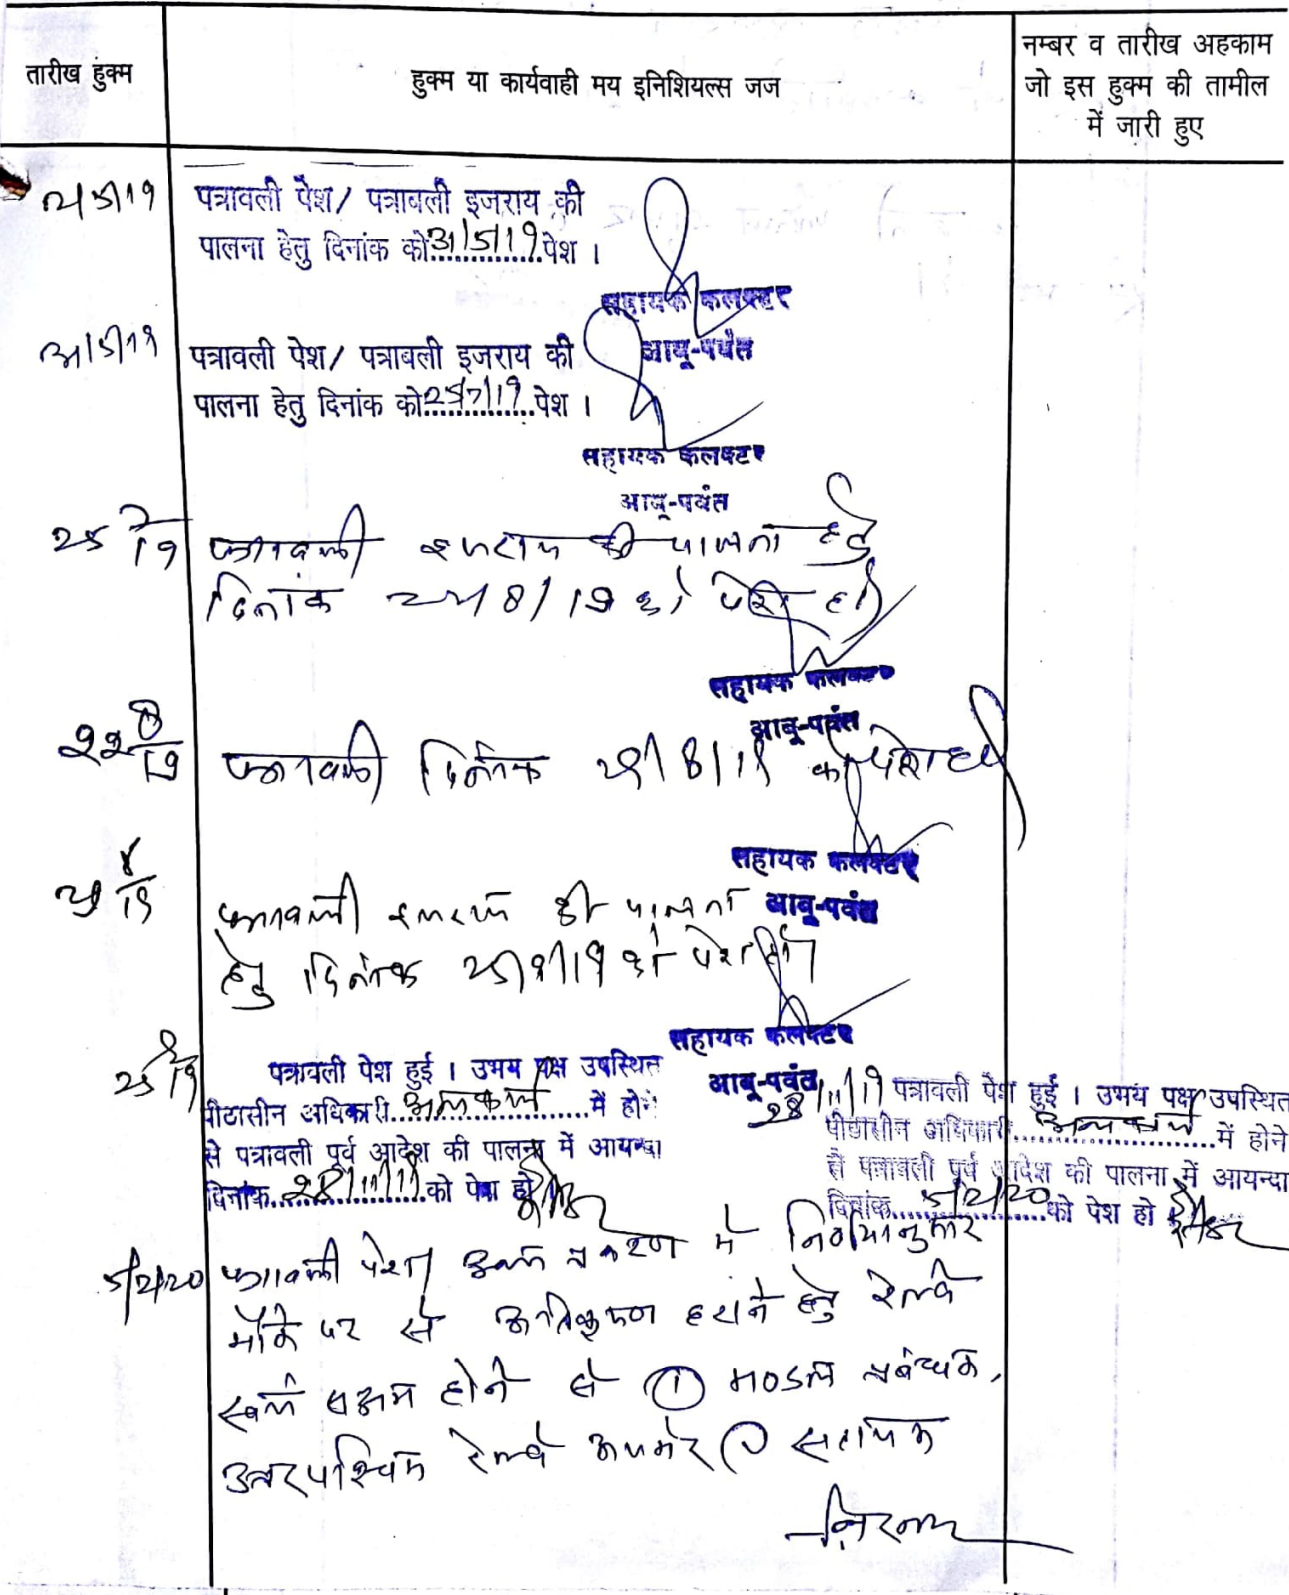 तारीख हुक्म
हुक्म या कार्यवाही मय इनिशियल्स जज
नम्बर व तारीख अहकाम
जो इस हुक्म की तामील
में जारी हुए
पत्रावली पेश/ पत्रावली इजराय की
पालना हेतु दिनांक को 31/5/19 पेश ।
सहायक कलक्टर
आबू-पर्वत
31/5/19
पत्रावली पेश/ पत्रावली इजराय की
पालना हेतु दिनांक को 25/7/19 पेश ।
सहायक कलक्टर
आबू-पर्वत
25 7/19 पत्रावली इजराय की पालना हेतु
दिनांक 22/8/19 को पेश हो
सहायक कलक्टर
आबू-पर्वत
22 8/19 पत्रावली दिनांक 29/8/19 को पेश हो
सहायक कलक्टर
आबू-पर्वत
29 8/19 पत्रावली इजराय की पालना
हेतु दिनांक 25/9/19 को पेश हो
सहायक कलक्टर
आबू-पर्वत
25 9/19 पत्रावली पेश हुई । उभय पक्ष उपस्थित
पीठासीन अधिकारी अन्य कार्य में होने
से पत्रावली पूर्व आदेश की पालना में आयन्दा
दिनांक 28/11/19 को पेश हो
28/11/19 पत्रावली पेश हुई । उभय पक्ष उपस्थित
पीठासीन अधिकारी अन्य कार्य में होने
से पत्रावली पूर्व आदेश की पालना में आयन्दा
दिनांक 5/2/20 को पेश हो
रीडर
5/2/20 पत्रावली पेश। उक्त प्रकरण में निर्णयानुसार
मौके पर से अतिक्रमण हटाने हेतु रेल्वे
स्वयं सक्षम होने से ① मण्डल प्रबंधक,
उत्तर पश्चिम रेल्वे अजमेर ② सहायक
निरन्तर